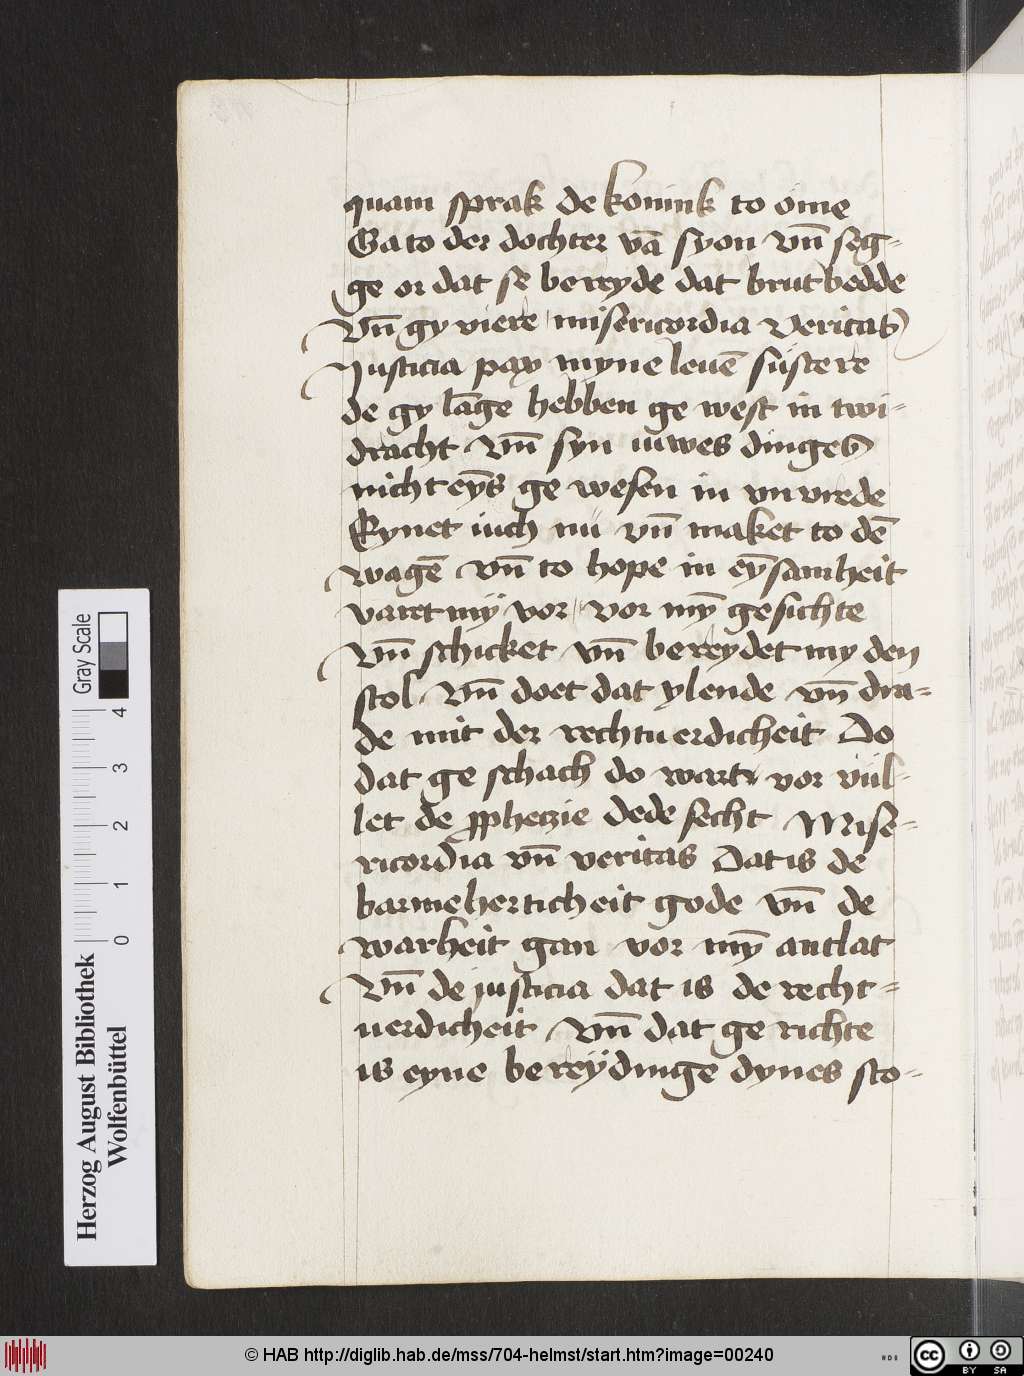 quam sprak de konink to öme
Ga to der dochter vā syon vn̄ seg=
ge or dat se bereyde dat brutbedde
vn̄ gy viere misericordia veritas
Justicia pax myne leuē süstere
de gy lāge hebben ge west in twi=
dracht vn̄ syn iuwes dinges
nicht eyn̄s ge wesen in vnvrede
Eynet iuch nu vn̄ maket to dē
wagē vn̄ to hope in eyn̄samheit
varet my vor vor myn̄ gesichte
vn̄ schicket vn̄ bereydet my den
stol vn̄ doet dat ylende vn̄ dra=
de mit der rechtuerdicheit Do
dat ge schach do wart vor vul=
let de ꝓphetzie dede secht Mise=
ricordia vn̄ veritas Dat is de
barmehertich eit gode vn̄ de
warheit gan vor myn̄ antlat
vn̄ de justicia dat is de recht=
uerdicheit vn̄ dat ge richte
is eyne bereydinge dynes sto=
Herzog August Bibliothek
Wolfenbüttel
0 1 2 3 4
Gray Scale
© HAB http://diglib.hab.de/mss/704-helmst/start.htm?image=00240
cc BY SA